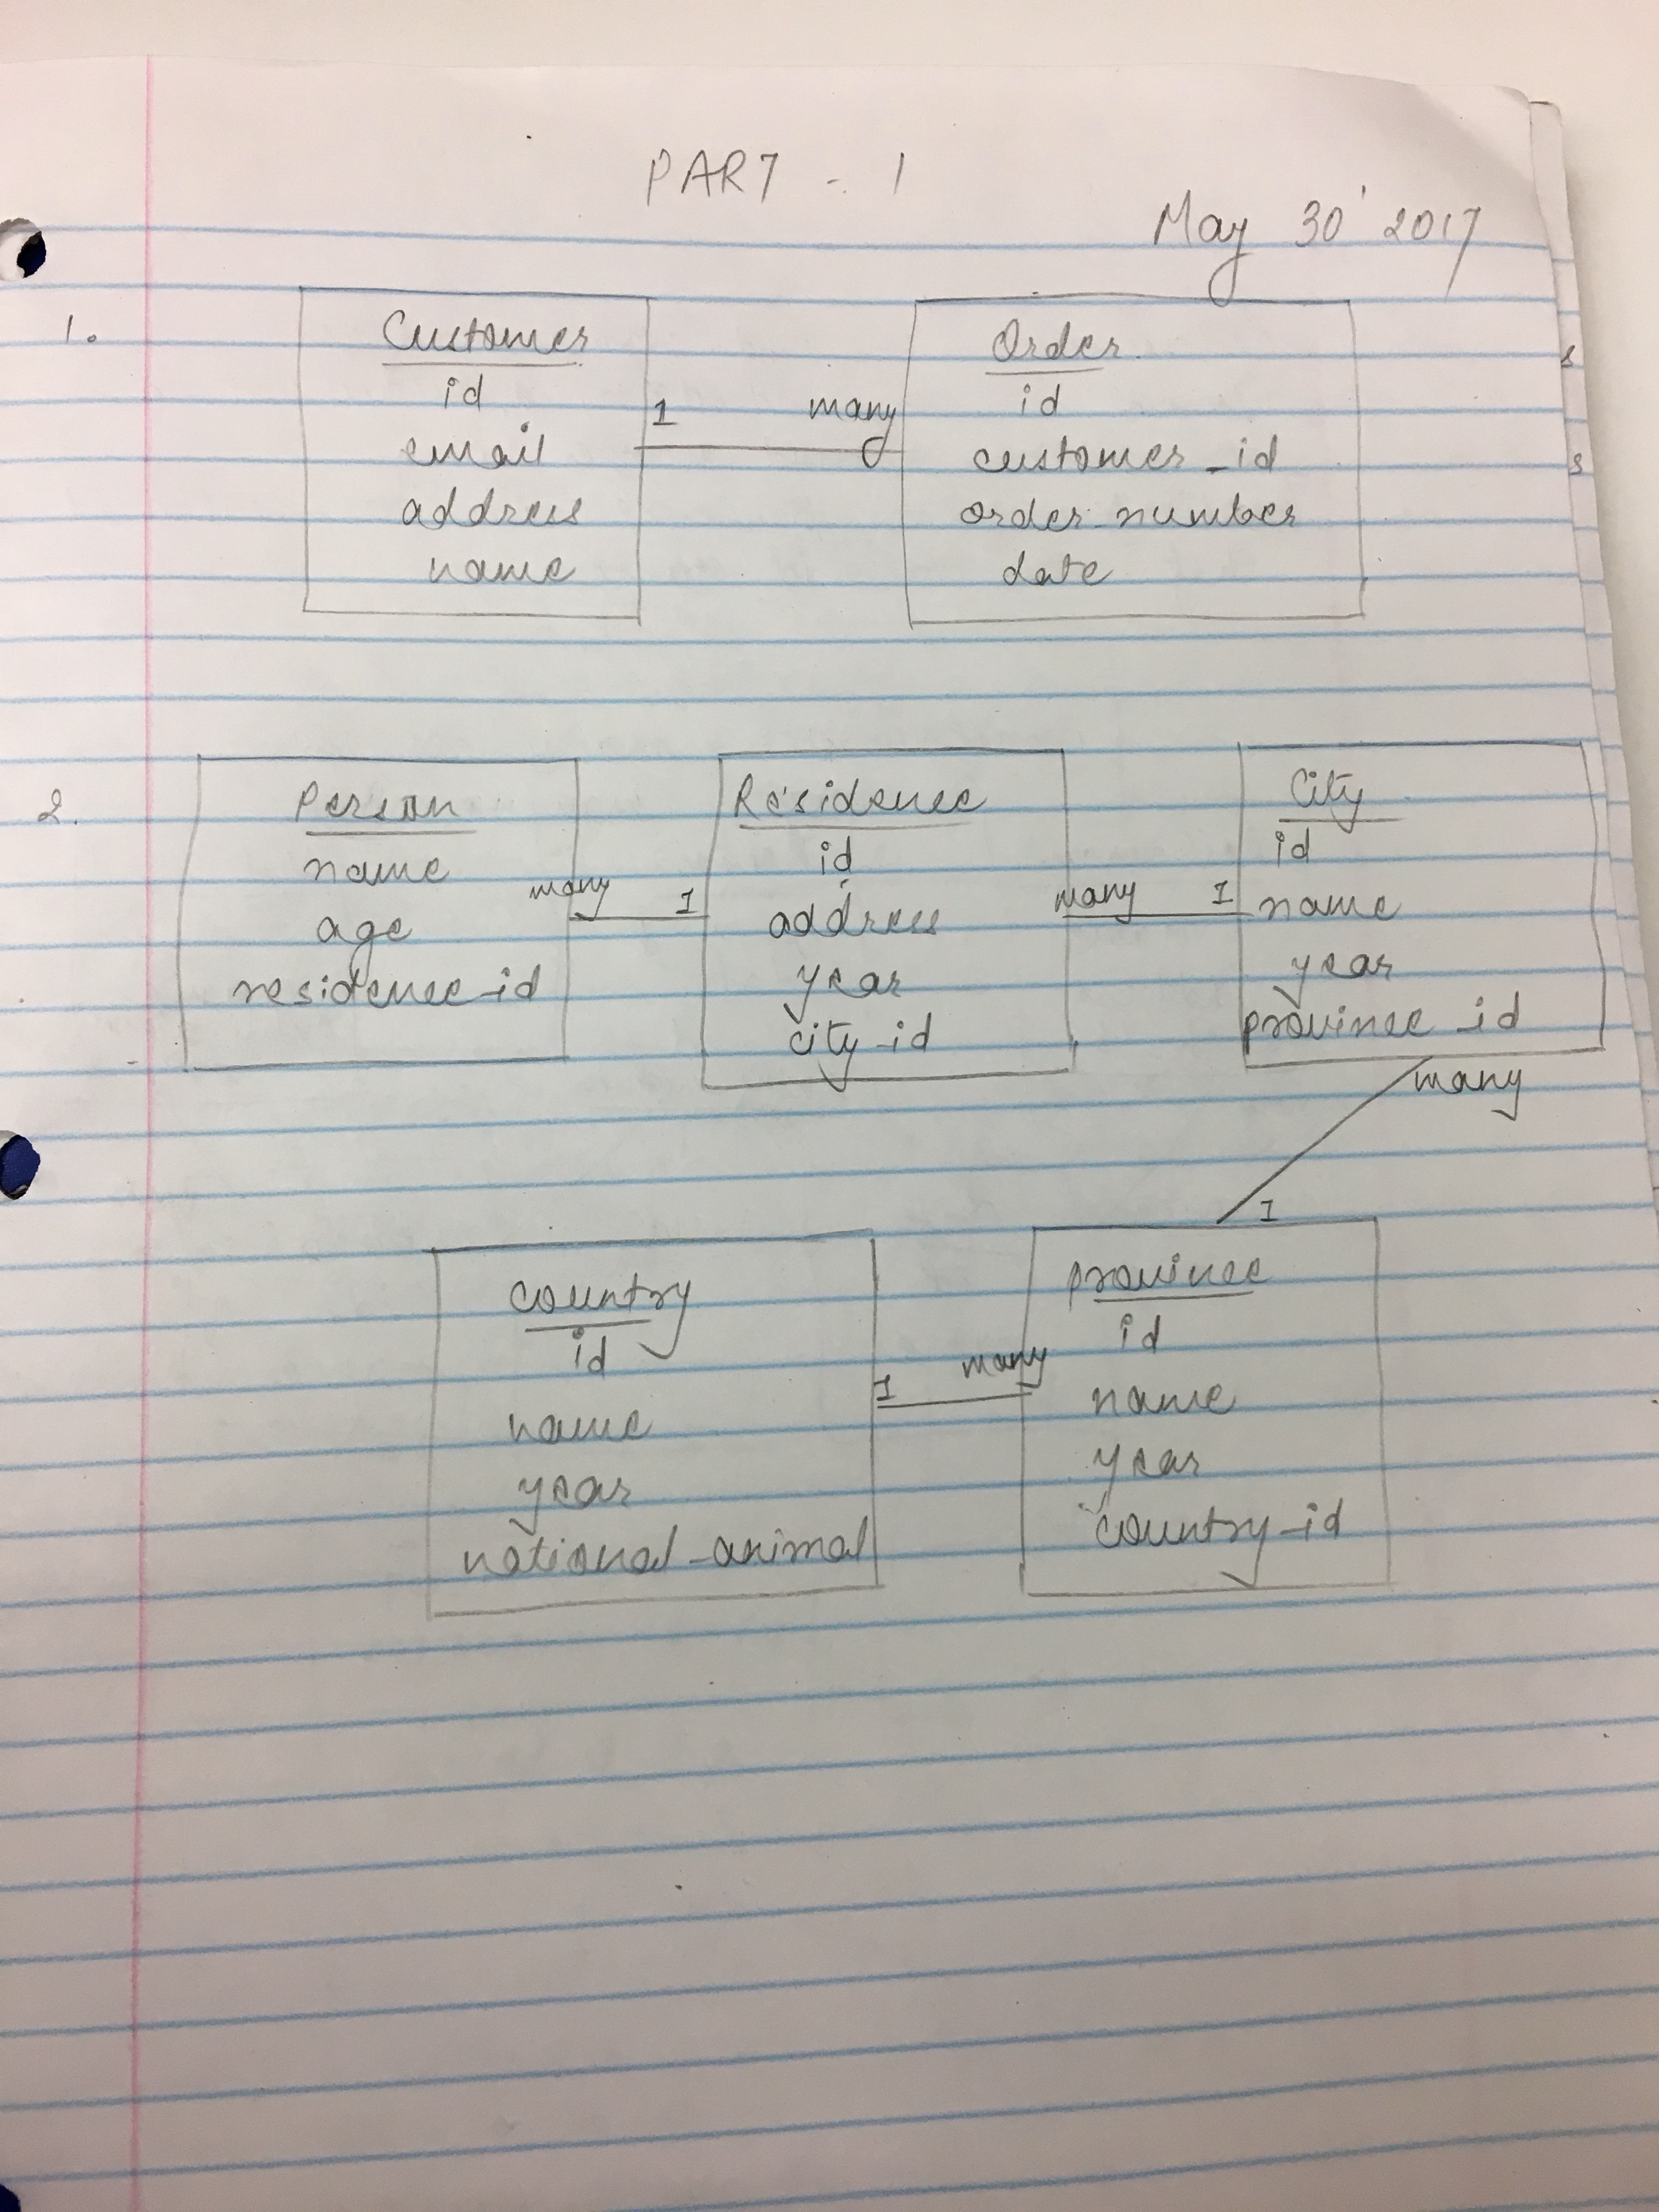 PART - 1
May 30' 2017
1.
Customer
id
email
address
name
1 many
Order
id
customer_id
order_number
date
2.
Person
name
age
residence_id
many 1
Residence
id
address
year
city_id
many 1
City
id
name
year
province_id
many
1
country
id
name
year
national_animal
1 many
province
id
name
year
country_id
s
s